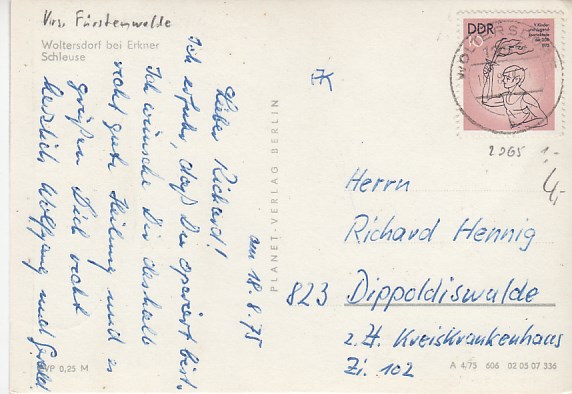 Krs. Fürstenwalde
Woltersdorf bei Erkner
Schleuse
am 18.8.75
Lieber Richard!
Ich erfuhr, daß Du operiert bist.
Ich wünsche Dir deshalb
recht gute Heilung und es
grüßen Dich recht
herzlich Wolfgang und
EVP 0,25 M
PLANET-VERLAG BERLIN
DDR
10
2065 1,-
4,-
Herrn
Richard Hennig
823 Dippoldiswalde
z. Zt. Kreiskrankenhaus
Zi. 102
A 4/75 606 02 05 07 336